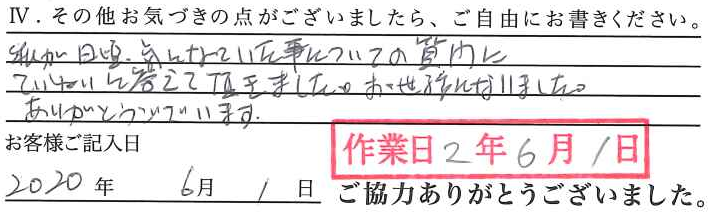 Ⅳ.その他お気づきの点がございましたら、ご自由にお書きください。
私が日頃、気になっていた事についての質問に
ていねいに答えて頂きました。お世話になりました。
ありがとうございます。
お客様ご記入日
作業日2年6月1日
2020年 6月 1日 ご協力ありがとうございました。